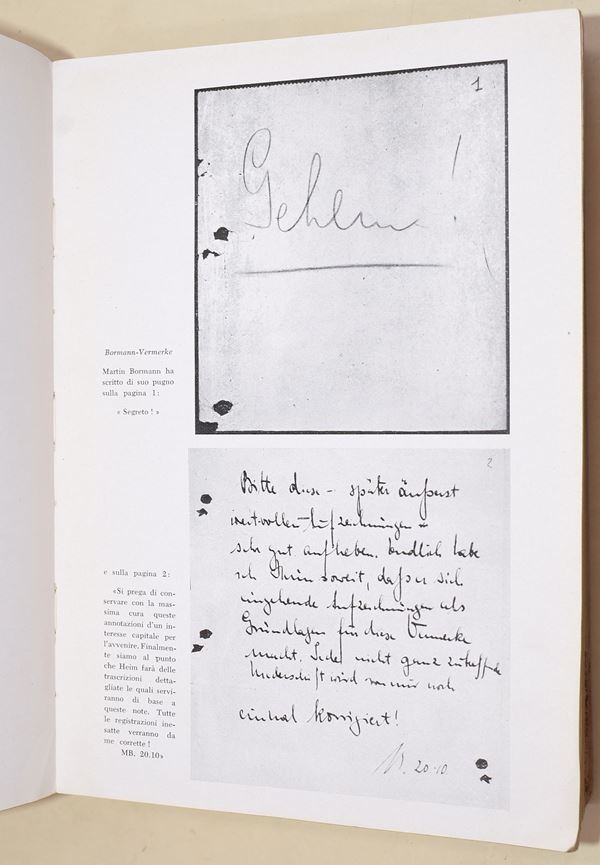 1
Geheim!
Bormann-Vermerke
Martin Bormann ha
scritto di suo pugno
sulla pagina 1:
« Segreto ! »
2
Bitte diese – später äußerst
wertvollen Aufzeichnungen –
sehr gut aufheben. Endlich habe
ich Heim soweit, daß er sich
eingehende Aufzeichnungen als
Grundlagen für diese Vermerke
macht. Jede nicht ganz zutreffende
Niederschrift wird von mir noch
einmal korrigiert!
20.10
e sulla pagina 2:
«Si prega di con-
servare con la mas-
sima cura queste
annotazioni d'un in-
teresse capitale per
l'avvenire. Finalmen-
te siamo al punto
che Heim farà delle
trascrizioni detta-
gliate le quali servi-
ranno di base a
queste note. Tutte
le registrazioni ine-
satte verranno da
me corrette !
MB. 20.10»